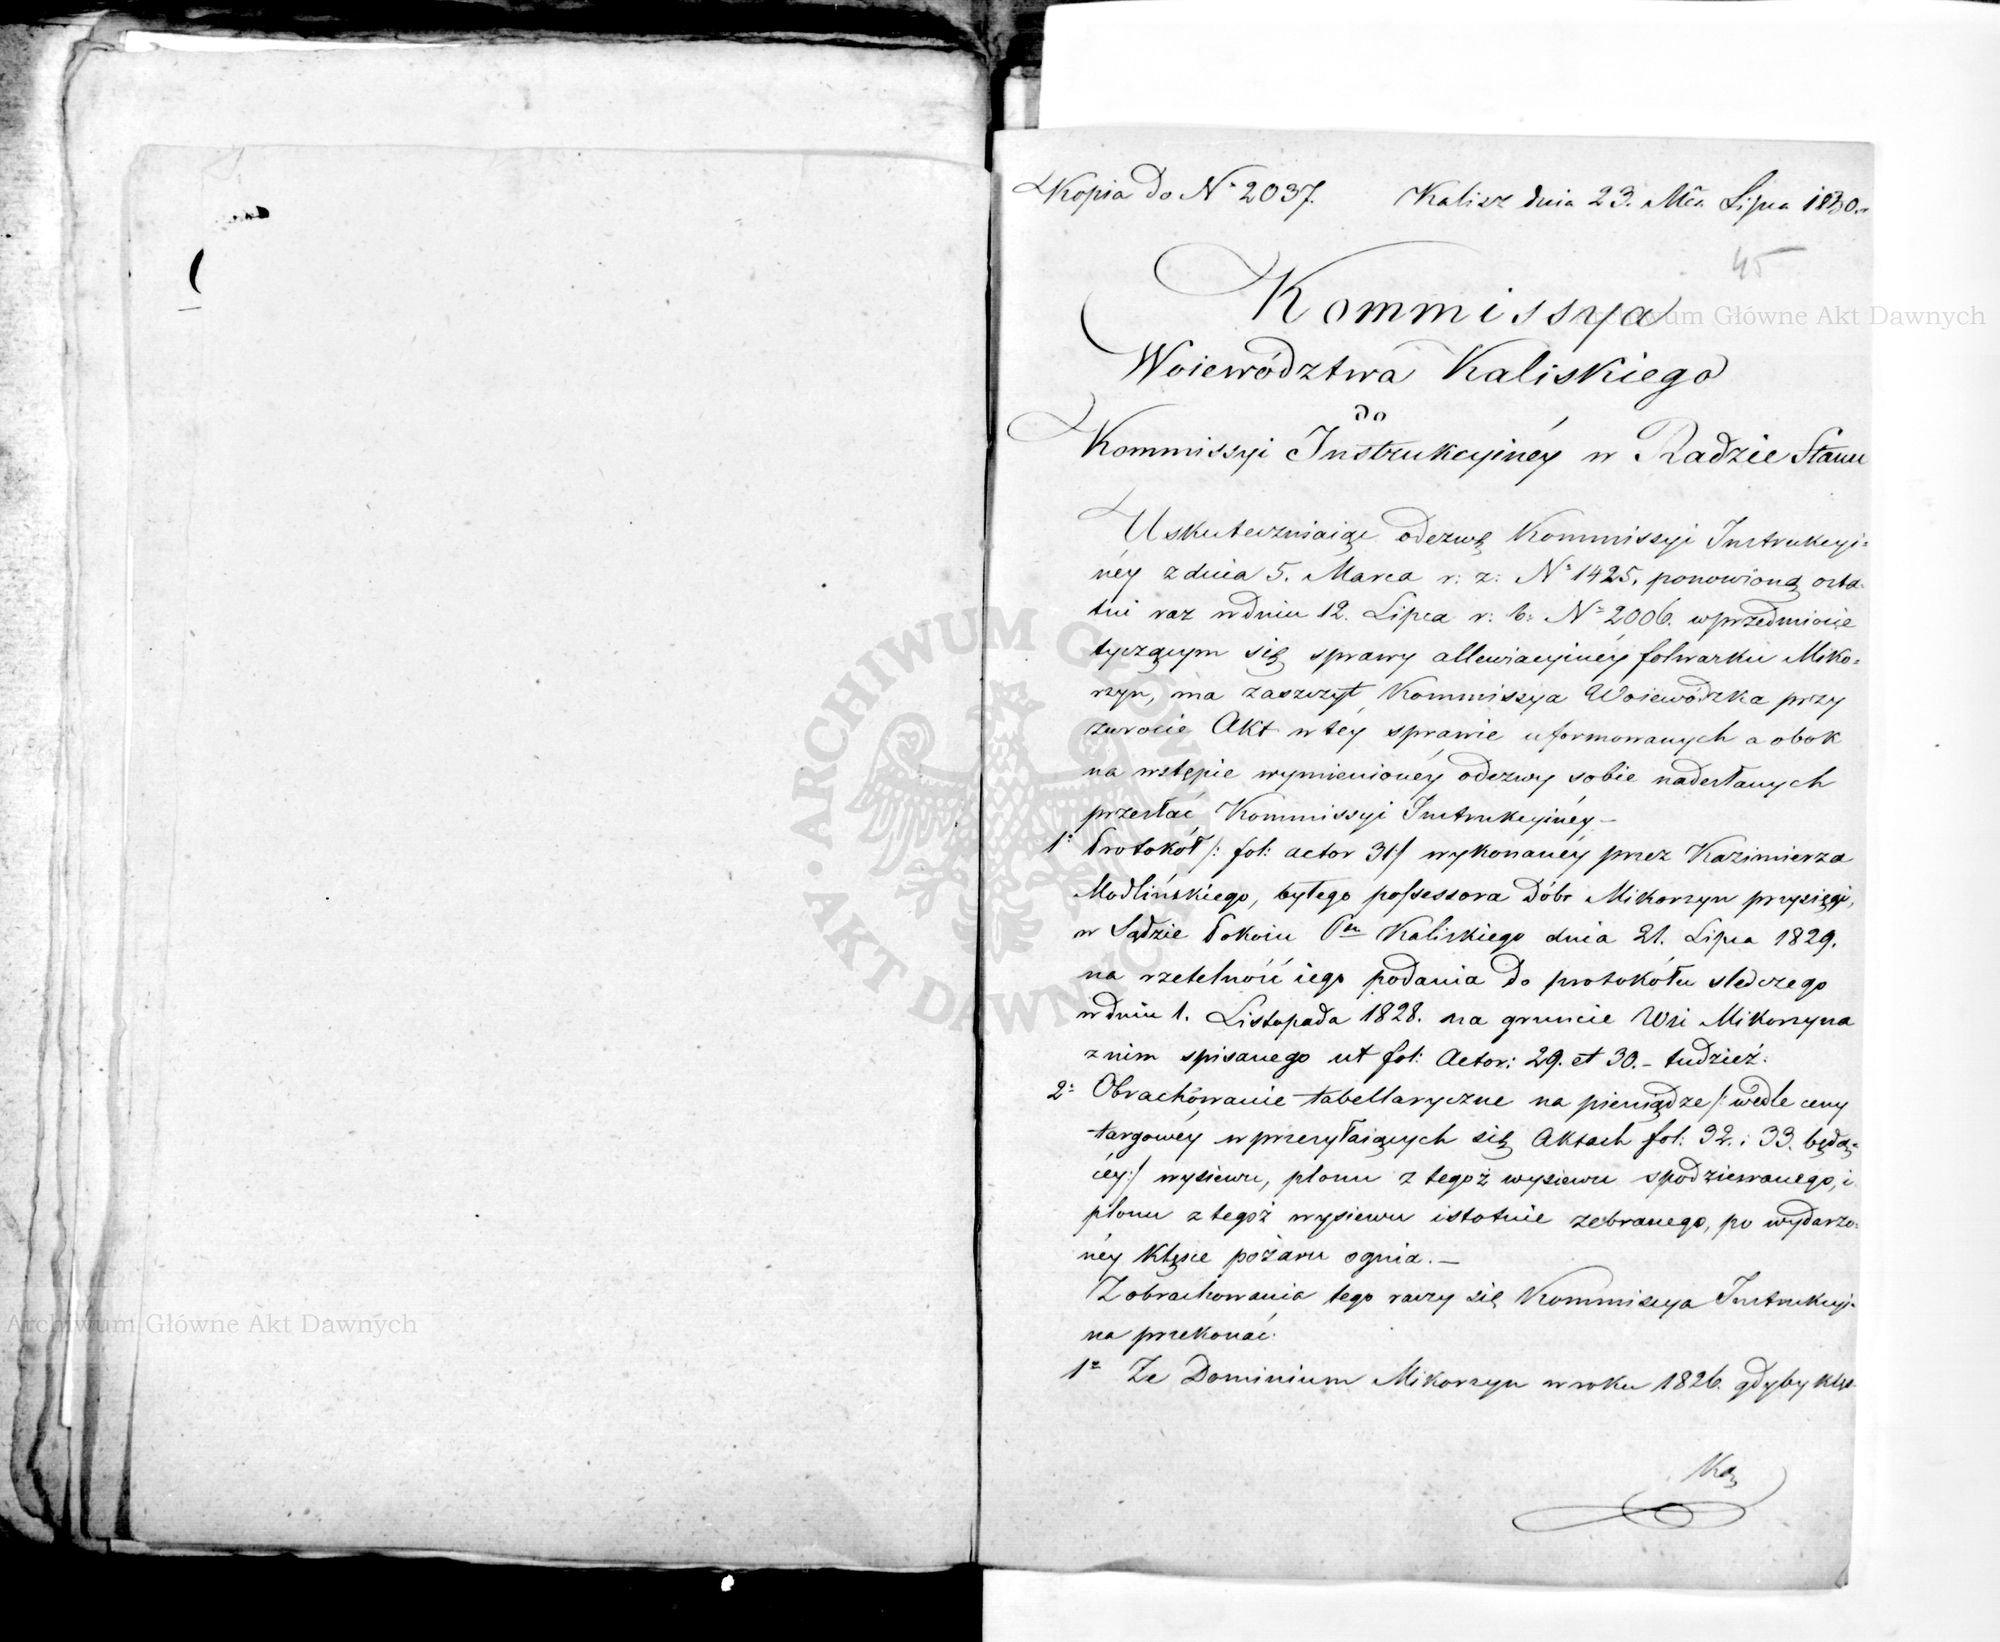 Kopia do Nº 2037. Kalisz dnia 23. Mca Lipca 1830.
45
Kommissya
Woiewództwa Kaliskiego
do
Kommissyi Instrukcyinéy w Radzie Stanu
Uskuteczniaiąc odezwę Kommissyi Instrukcyi=
néy z dnia 5. Marca r: z: Nº 1425. ponowioną osta=
tni raz w dniu 12. Lipca r: b: Nº 2006. w przedmiocie
tyczącym się sprawy allewiacyinéy folwarku Miko=
rzyn, ma zaszczyt Kommissya Woiewódzka przy
zwrocie Akt w téy sprawie uformowanych a obok
na wstępie wymienionéy odezwy sobie nadesłanych
przesłać Kommissyi Instrukcyinéy –
1º Protokół /: fol: actor 31 :/ wykonanéy przez Kazimierza
Modlińskiego, byłego possessora Dóbr Mikorzyn przysięgi,
w Sądzie Pokoiu Ptu Kaliskiego dnia 21. Lipca 1829.
na rzetelność iego podania do protokółu sledczego
w dniu 1. Listopada 1828. na gruncie Wsi Mikorzyna
z nim spisanego ut fol: Actor: 29. et 30. – tudzież:
2º Obrachowanie tabellaryczne na pieniądze /: wedle ceny
targowéy w przesyłaiących się Aktach fol: 32. i 33. będą=
céy :/ wysiewu, plonu z tegoż wysiewu spodziewanego, i
plonu z tegoż wysiewu istotnie zebranego, po wydarzo=
néy klęsce pożaru ognia. –
Z obrachowania tego raczy się Kommissya Instrukcyi=
na przekonać:
1º Ze Dominium Mikorzyn w roku 1826. gdyby klęs
Archiwum Główne Akt Dawnych
Archiwum Główne Akt Dawnych
ARCHIWUM GŁÓWNE AKT DAWNYCH